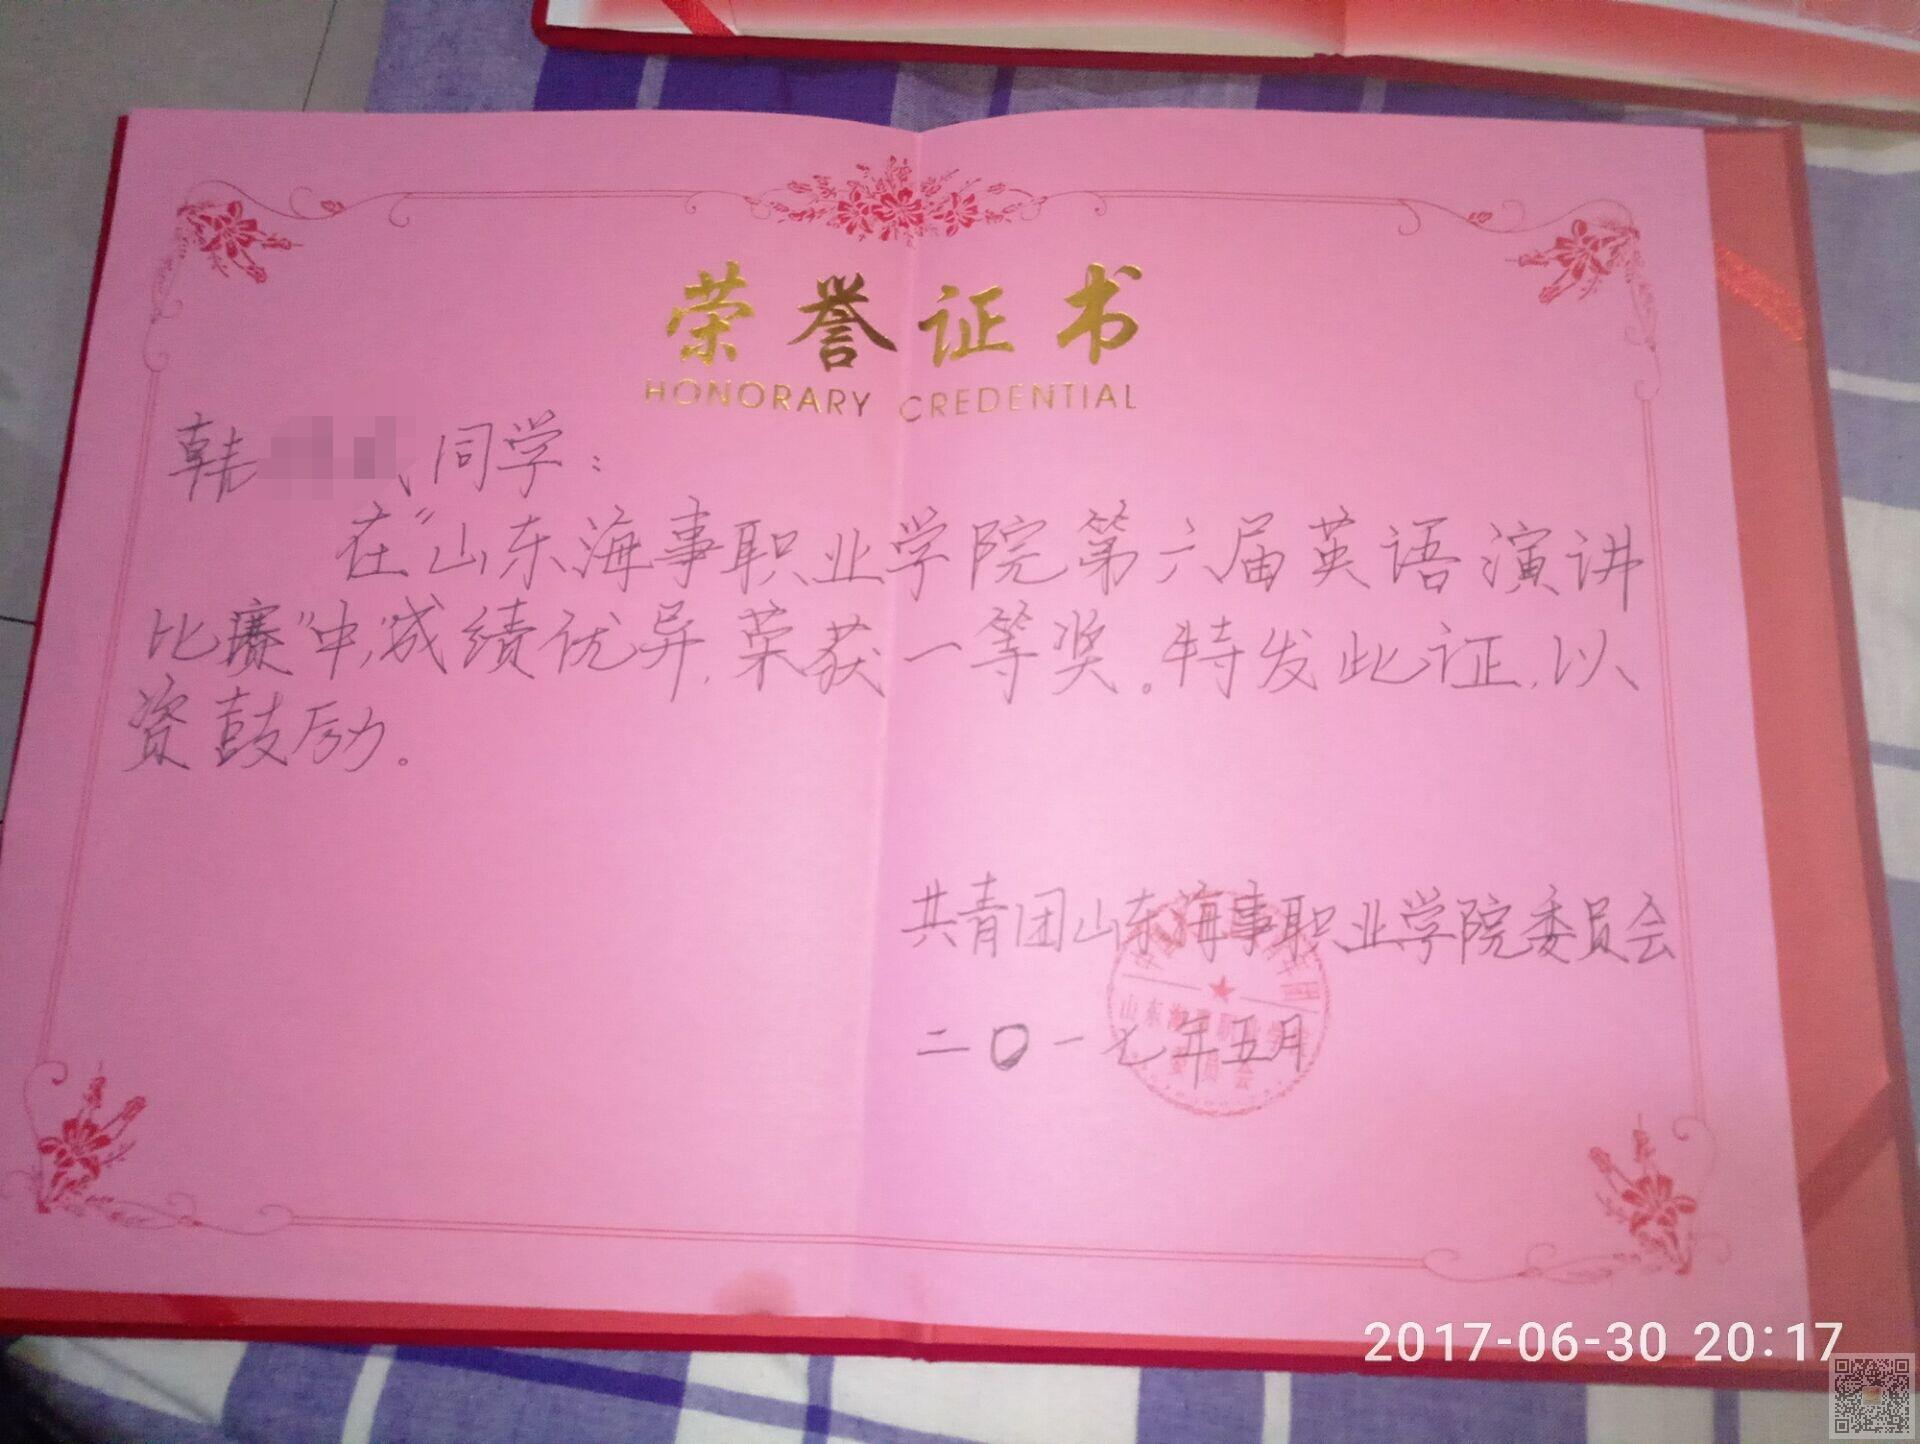 荣誉证书
HONORARY CREDENTIAL
韩 同学：
在“山东海事职业学院第六届英语演讲
比赛”中,成绩优异,荣获一等奖。特发此证,以
资鼓励。
共青团山东海事职业学院委员会
二〇一七年五月
山东海事职业学院
委员会
2017-06-30 20:17